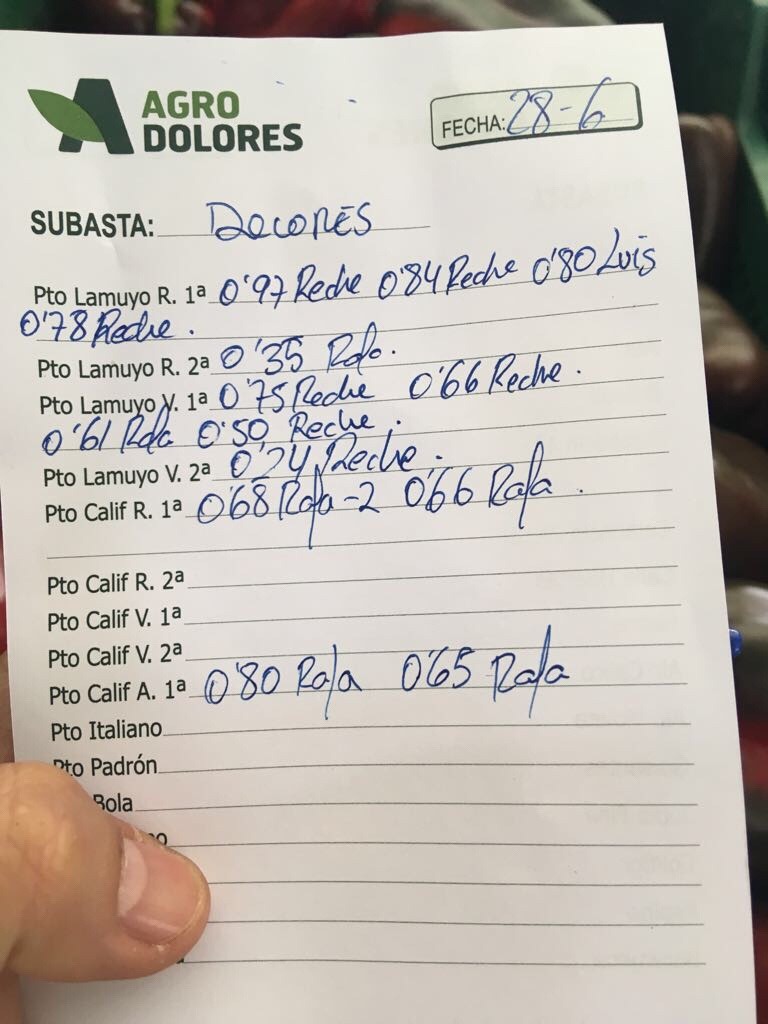 AGRO
DOLORES
FECHA: 28-6
SUBASTA: DOLORES
Pto Lamuyo R. 1ª 0'97 Reche 0'84 Reche 0'80 Luis
0'78 Reche.
Pto Lamuyo R. 2ª 0'35 Rafa.
Pto Lamuyo V. 1ª 0'75 Reche 0'66 Reche.
0'61 Rafa 0'50 Reche.
Pto Lamuyo V. 2ª 0'24 Reche.
Pto Calif R. 1ª 0'68 Rafa-2 0'66 Rafa.
Pto Calif R. 2ª
Pto Calif V. 1ª
Pto Calif V. 2ª
Pto Calif A. 1ª 0'80 Rafa 0'65 Rafa
Pto Italiano
Pto Padrón
Bola